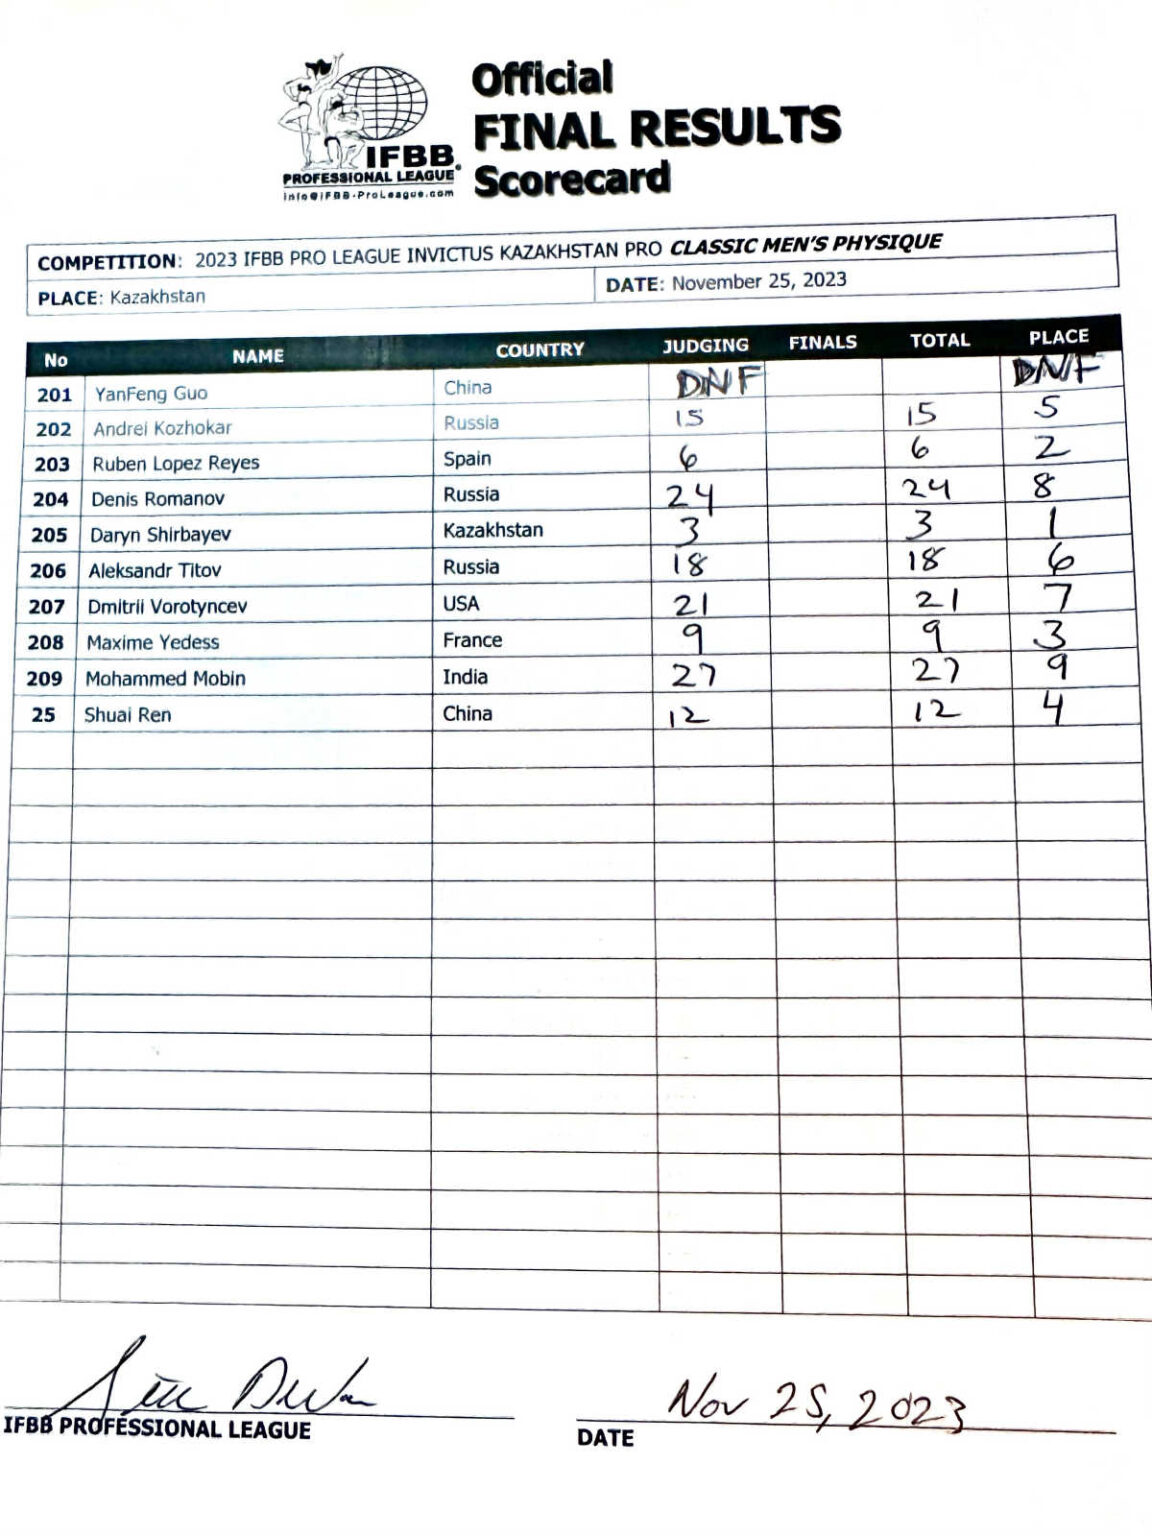 Official
FINAL RESULTS
Scorecard
IFBB
PROFESSIONAL LEAGUE
info@IFBB-ProLeague.com
COMPETITION: 2023 IFBB PRO LEAGUE INVICTUS KAZAKHSTAN PRO CLASSIC MEN'S PHYSIQUE
PLACE: Kazakhstan DATE: November 25, 2023
No NAME COUNTRY JUDGING FINALS TOTAL PLACE
201 YanFeng Guo China DNF DNF
202 Andrei Kozhokar Russia 15 15 5
203 Ruben Lopez Reyes Spain 6 6 2
204 Denis Romanov Russia 24 24 8
205 Daryn Shirbayev Kazakhstan 3 3 1
206 Aleksandr Titov Russia 18 18 6
207 Dmitrii Vorotyncev USA 21 21 7
208 Maxime Yedess France 9 9 3
209 Mohammed Mobin India 27 27 9
25 Shuai Ren China 12 12 4
Nov 25, 2023
IFBB PROFESSIONAL LEAGUE
DATE